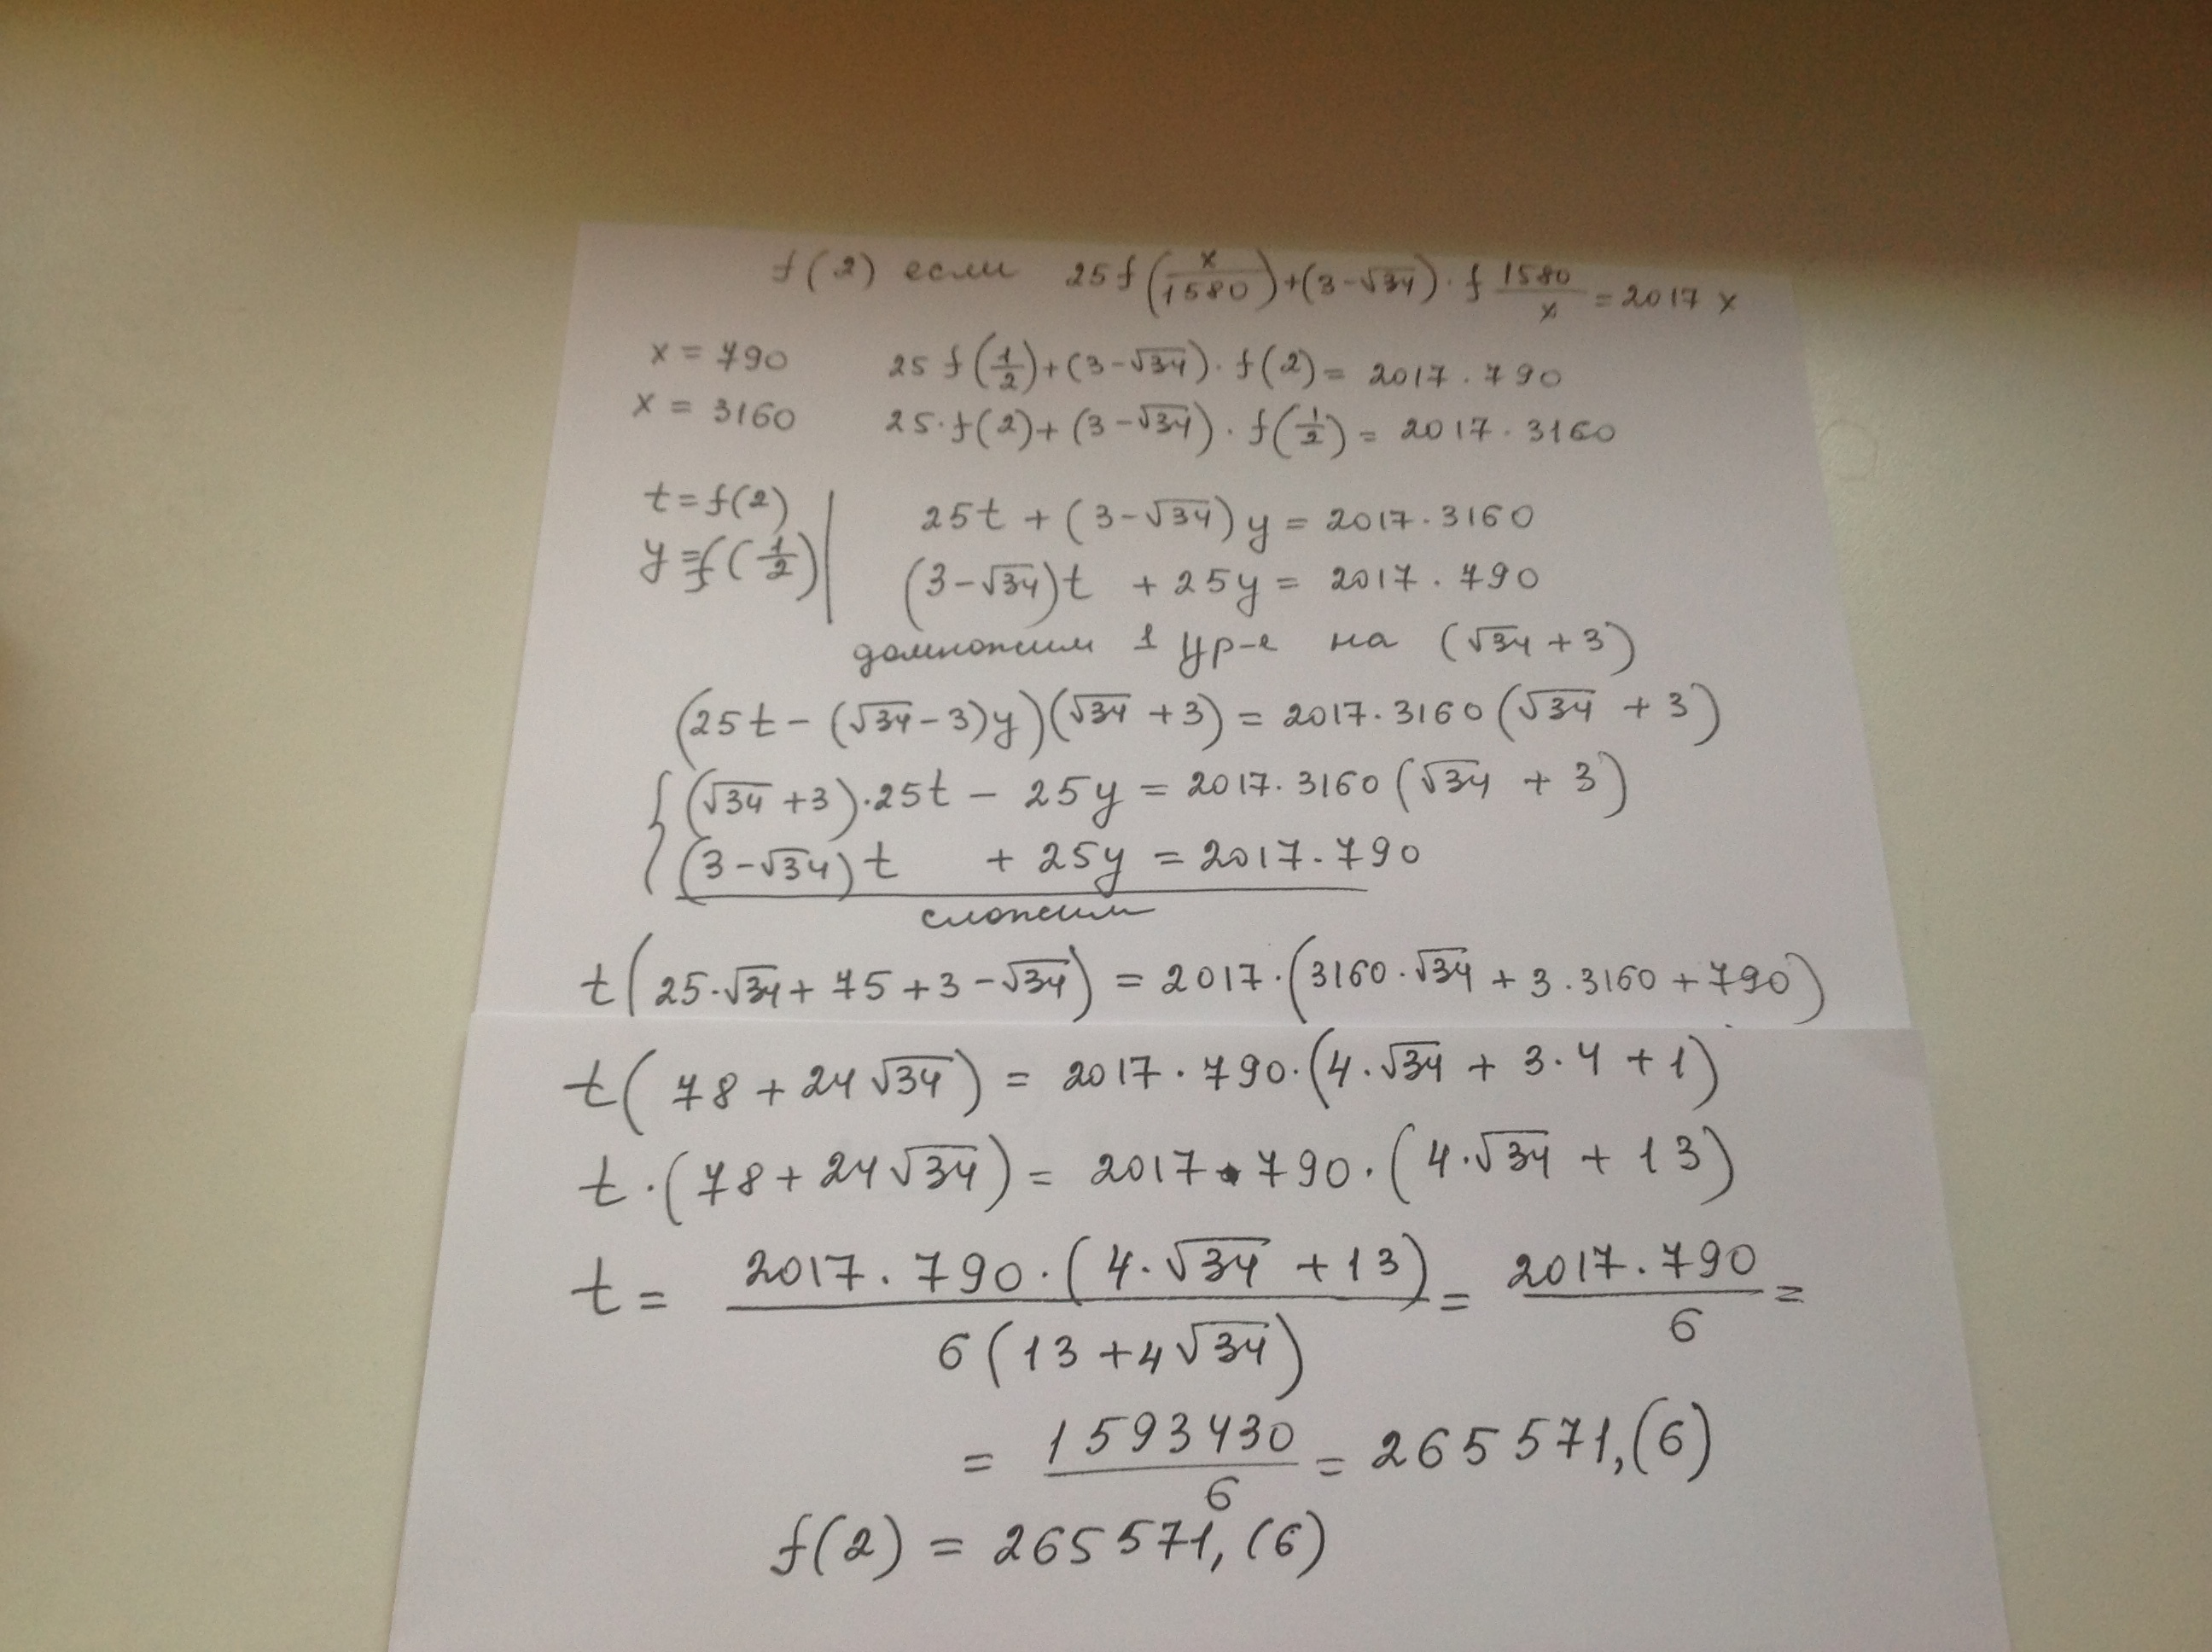 f(2) если 25f(x/1580)+(3-√34)·f 1580/x = 2017 x
x = 790 25 f(1/2)+(3-√34)·f(2)= 2017·790
x = 3160 25·f(2)+(3-√34)·f(1/2)= 2017·3160
t=f(2) | 25t+(3-√34)y=2017·3160
y=f(1/2) | (3-√34)t +25y= 2017·790
домножим 1 ур-е на (√34+3)
(25t-(√34-3)y)(√34+3)=2017·3160(√34+3)
{(√34+3)·25t-25y=2017·3160(√34+3)
(3-√34)t +25y=2017·790
сложим
t(25·√34+75+3-√34)=2017·(3160·√34+3·3160+790)
t(78+24√34)=2017·790·(4·√34+3·4+1)
t·(78+24√34)=2017·790·(4·√34+13)
t= 2017·790·(4·√34+13)/6(13+4√34) = 2017·790/6 =
= 1593430/6 = 265571,(6)
f(2) = 265571,(6)